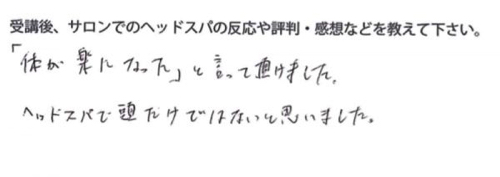 受講後、サロンでのヘッドスパの反応や評判・感想などを教えて下さい。
「体が楽になった」と言って頂けました。
ヘッドスパで頭だけではないと思いました。